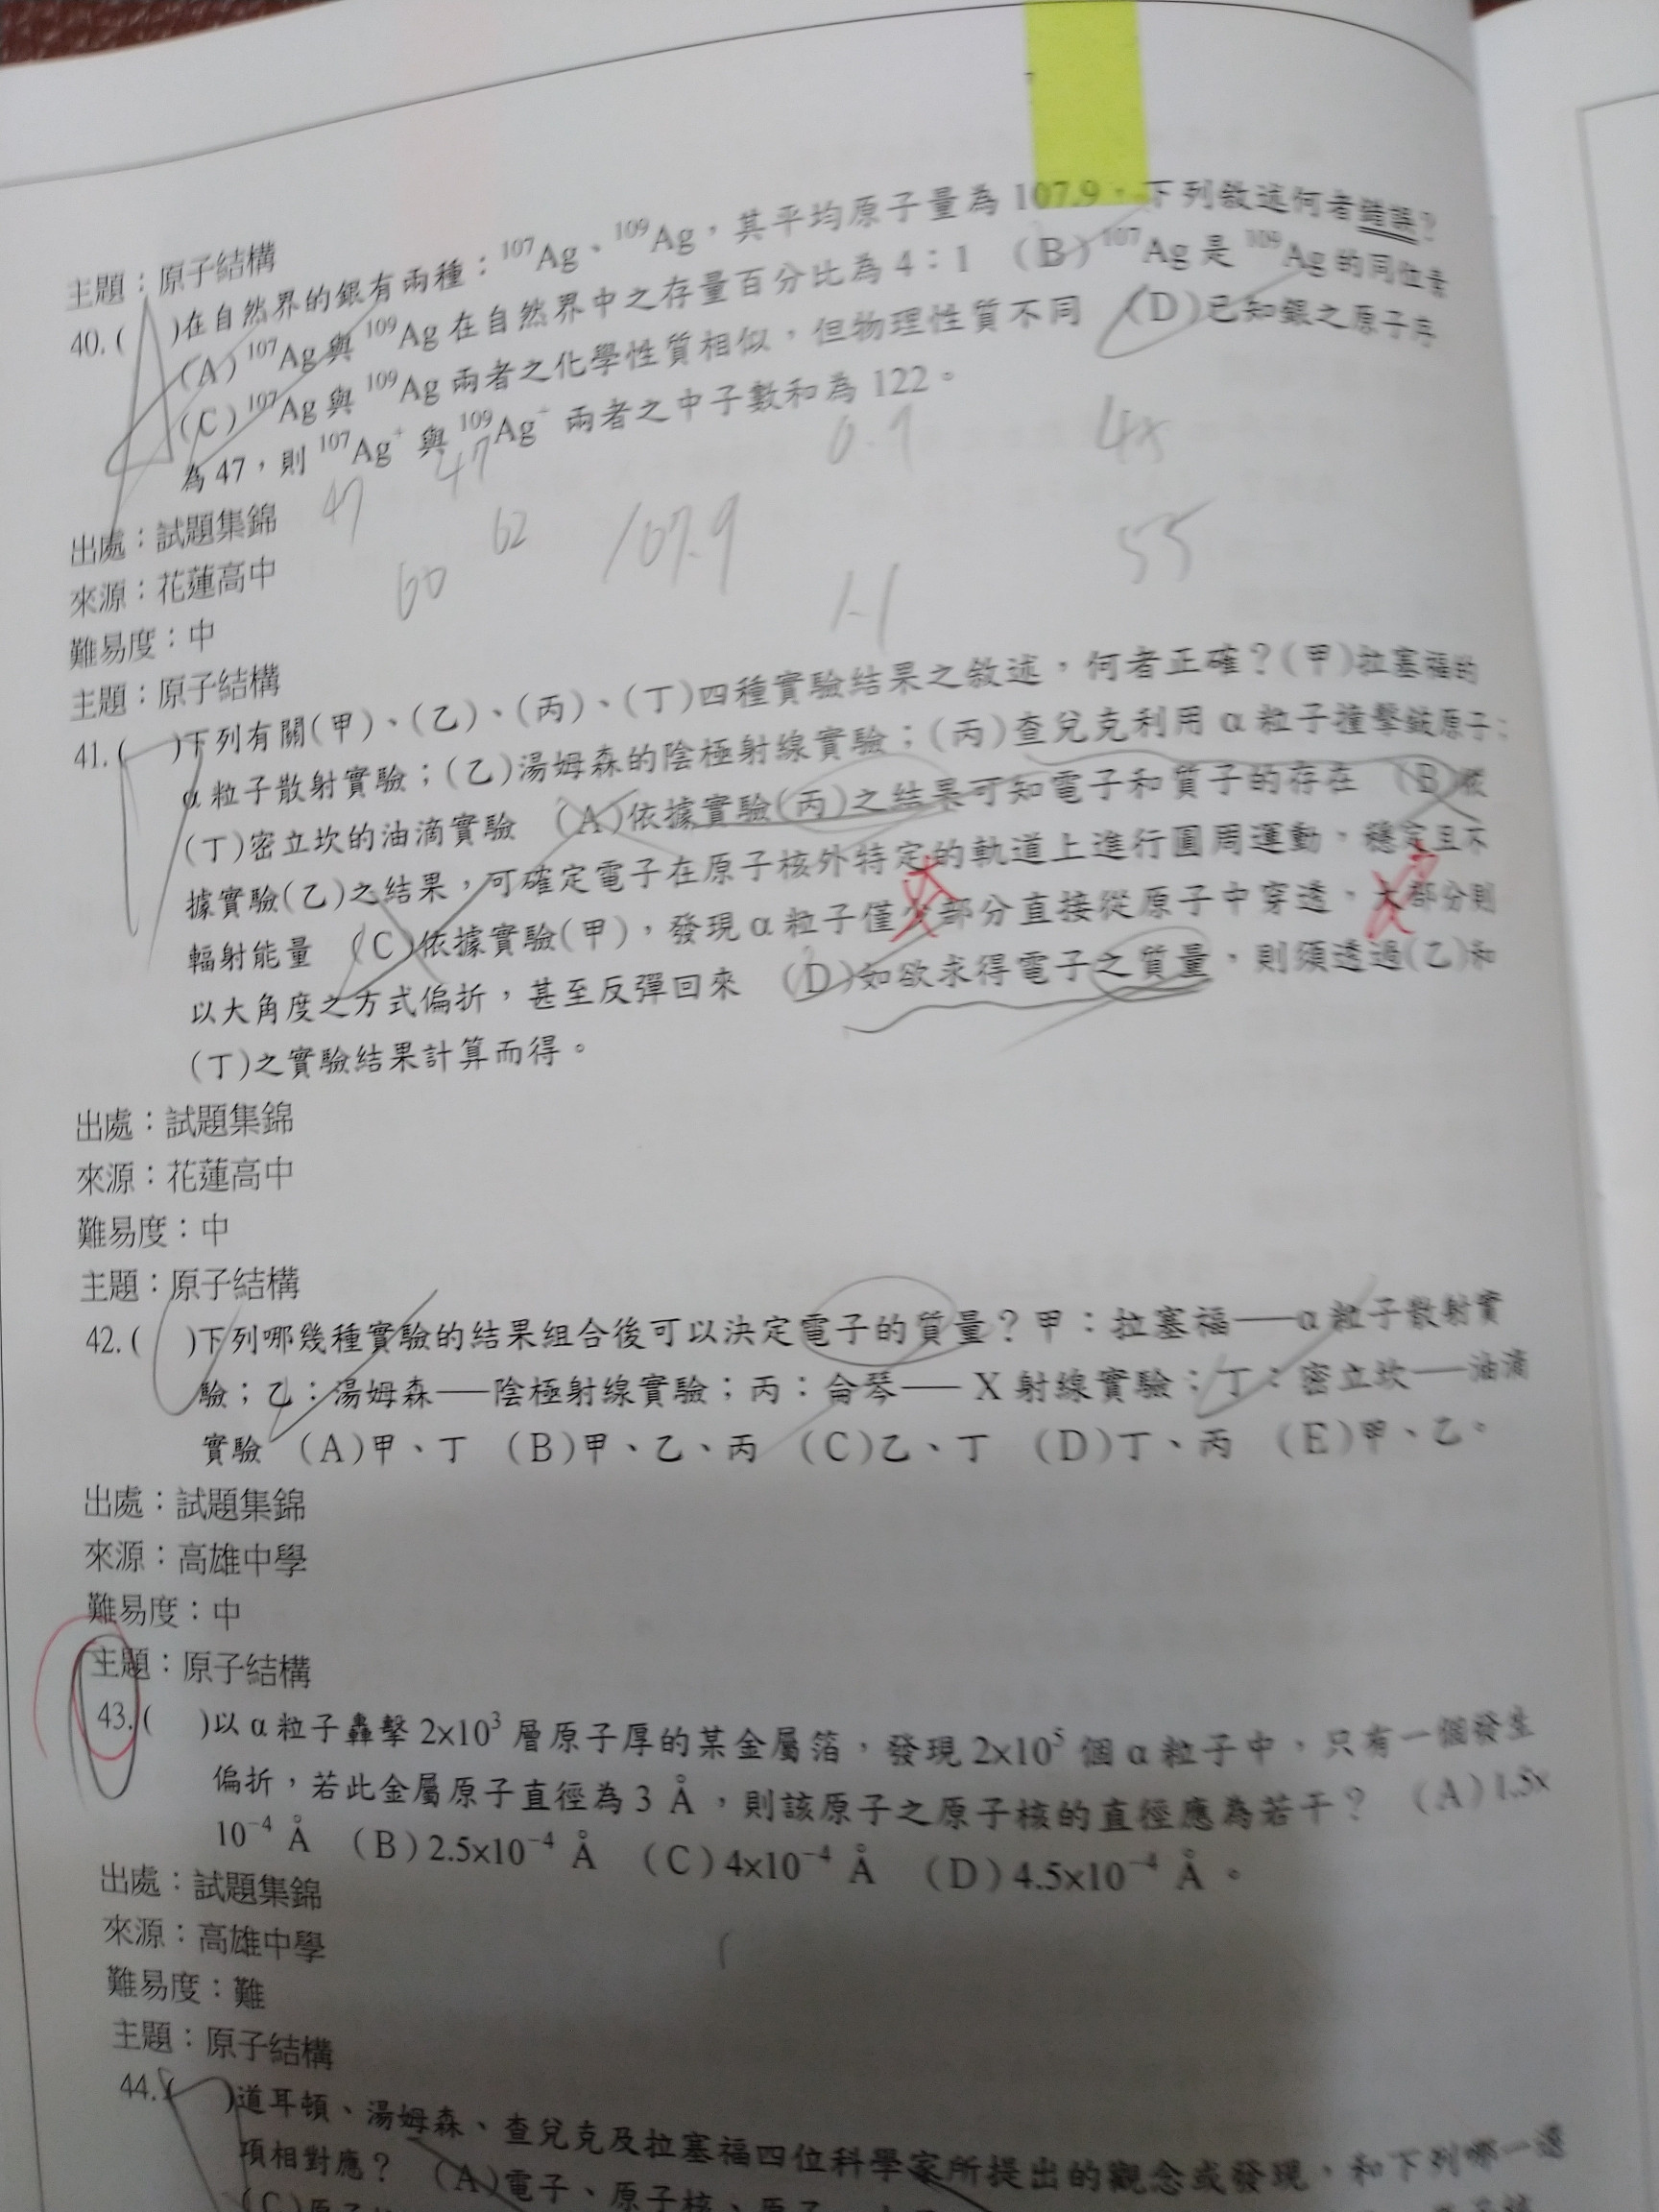 主題：原子結構
40.( A )在自然界的銀有兩種：¹⁰⁷Ag、¹⁰⁹Ag，其平均原子量為 107.9，下列敘述何者錯誤？
(A) ¹⁰⁷Ag 與 ¹⁰⁹Ag 在自然界中之存量百分比為 4：1 (B) ¹⁰⁷Ag 是 ¹⁰⁹Ag 的同位素
(C) ¹⁰⁷Ag 與 ¹⁰⁹Ag 兩者之化學性質相似，但物理性質不同 (D)已知銀之原子序
為 47，則 ¹⁰⁷Ag⁺ 與 ¹⁰⁹Ag⁺ 兩者之中子數和為 122。
47 47 0.9
60 62 107.9 1.1 55
出處：試題集錦
來源：花蓮高中
難易度：中
主題：原子結構
41.( )下列有關(甲)、(乙)、(丙)、(丁)四種實驗結果之敘述，何者正確？(甲)拉塞福的
α 粒子散射實驗；(乙)湯姆森的陰極射線實驗；(丙)查兌克利用 α 粒子撞擊鈹原子；
(丁)密立坎的油滴實驗 (A)依據實驗(丙)之結果可知電子和質子的存在 (B)依
據實驗(乙)之結果，可確定電子在原子核外特定的軌道上進行圓周運動，穩定且不
輻射能量 (C)依據實驗(甲)，發現 α 粒子僅少部分直接從原子中穿透，大部分則
以大角度之方式偏折，甚至反彈回來 (D)如欲求得電子之質量，則須透過(乙)和
(丁)之實驗結果計算而得。
出處：試題集錦
來源：花蓮高中
難易度：中
主題：原子結構
42.( )下列哪幾種實驗的結果組合後可以決定電子的質量？甲：拉塞福──α 粒子散射實
驗；乙：湯姆森──陰極射線實驗；丙：侖琴── X 射線實驗；丁：密立坎──油滴
實驗 (A)甲、丁 (B)甲、乙、丙 (C)乙、丁 (D)丁、丙 (E)甲、乙。
出處：試題集錦
來源：高雄中學
難易度：中
主題：原子結構
43.( )以 α 粒子轟擊 2x10³ 層原子厚的某金屬箔，發現 2x10⁵ 個 α 粒子中，只有一個發生
偏折，若此金屬原子直徑為 3 Å，則該原子之原子核的直徑應為若干？ (A) 1.5x
10⁻⁴ Å (B) 2.5x10⁻⁴ Å (C) 4x10⁻⁴ Å (D) 4.5x10⁻⁴ Å。
出處：試題集錦
來源：高雄中學
難易度：難
主題：原子結構
44.( )道耳頓、湯姆森、查兌克及拉塞福四位科學家所提出的觀念或發現，和下列哪一選
項相對應？ (A)電子、原子核、原子